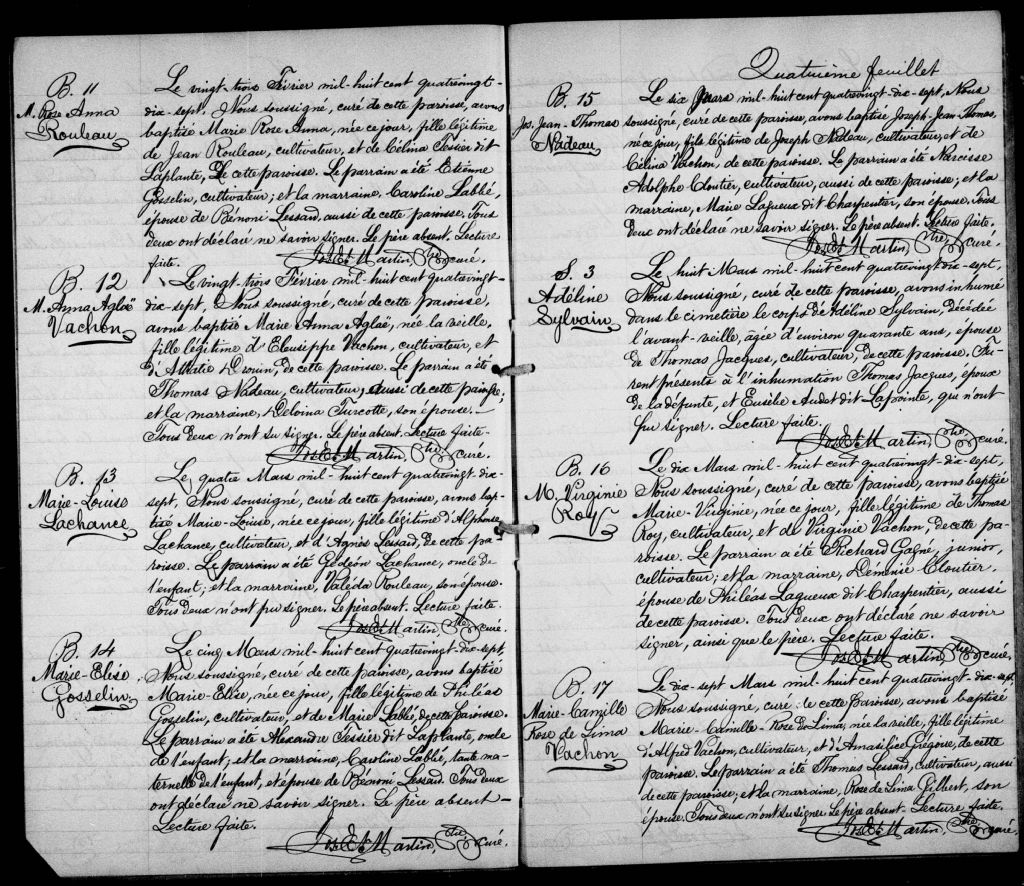 B. 11
M. Rose Anna
Rouleau
Le vingt-trois Février mil-huit cent quatrevingt-
dix-sept, Nous soussigné, curé de cette paroisse, avons
baptisé Marie Rose Anna, née ce jour, fille légitime
de Jean Rouleau, cultivateur, et de Célina Tessier dit
Laplante, de cette paroisse. Le parrain a été Etienne
Gosselin, cultivateur; et la marraine, Caroline Labbé,
épouse de Bénoni Lessard, aussi de cette paroisse. Tous
deux ont déclaré ne savoir signer. Le père absent. Lecture
faite.
Jos. Et. Martin, Ptre curé.
B. 12
M. Anna Aglaë
Vachon
Le vingt-trois Février mil-huit cent quatrevingt-
dix-sept, Nous soussigné, curé de cette paroisse,
avons baptisé Marie Anna Aglaë, née la veille,
fille légitime d'Eleusippe Vachon, cultivateur, et
d'Attatie Drouin, de cette paroisse. Le parrain a été
Thomas Nadeau, cultivateur, aussi de cette paroisse,
et la marraine, Delvina Turcotte, son épouse.—
Tous deux n'ont su signer. Le père absent. Lecture faite-
Jos. Et. Martin, Ptre curé.
B. 13
Marie-Louise
Lachance
Le quatre Mars mil-huit cent quatrevingt-dix-
sept, Nous soussigné, curé de cette paroisse, avons bap-
tisé Marie-Louise, née ce jour, fille légitime d'Alphonse
Lachance, cultivateur, et d'Agnès Lessard, de cette pa-
roisse. Le parrain a été Gédéon Lachance, oncle de
l'enfant; et la marraine, Valéda Rouleau, son épouse.
Tous deux n'ont pu signer. Le père absent. Lecture faite.
Jos. Et. Martin, Ptre curé.
B. 14
Marie-Elise
Gosselin
Le cinq Mars mil-huit cent quatrevingt-dix-sept,
Nous soussigné, curé de cette paroisse, avons baptisé
Marie-Elise, née ce jour, fille légitime de Philéas
Gosselin, cultivateur, et de Marie Labbé, de cette paroisse.
Le parrain a été Alexandre Tessier dit Laplante, oncle
de l'enfant; et la marraine, Caroline Labbé, tante ma-
ternelle de l'enfant, et épouse de Bénoni Lessard. Tous deux
ont déclaré ne savoir signer. Le père absent-
Lecture faite.
Jos. Et. Martin, Ptre curé.
Quatrième feuillet
B. 15
Jos. Jean-Thomas
Nadeau
Le six Mars mil-huit cent quatrevingt-dix-sept, Nous
soussigné, curé de cette paroisse, avons baptisé Joseph-Jean-Thomas,
né ce jour, fils légitime de Joseph Nadeau, cultivateur, et de
Célina Vachon, de cette paroisse. Le parrain a été Narcisse
Adolphe Cloutier, cultivateur, aussi de cette paroisse; et la
marraine, Marie Lagueux dit Charpentier, son épouse. Tous
deux ont déclaré ne savoir signer. Le père absent. Lecture faite.
Jos. Et. Martin, Ptre curé.
S. 3
Adéline
Sylvain
Le huit Mars mil-huit cent quatrevingt-dix-sept,
Nous soussigné, curé de cette paroisse, avons inhumé
dans le cimetière le corps d'Adéline Sylvain, décédée
l'avant-veille, âgée d'environ quarante ans, épouse
de Thomas Jacques, cultivateur, de cette paroisse. Fu-
rent présents à l'inhumation Thomas Jacques, époux
de la défunte, et Eusèbe Audet dit Lapointe, qui n'ont
pu signer. Lecture faite.
Jos. Et. Martin, Ptre curé.
B. 16
M. Virginie
Roy
Le dix Mars mil-huit cent quatrevingt-dix-sept,
Nous soussigné, curé de cette paroisse, avons baptisé
Marie-Virginie, née ce jour, fille légitime de Thomas
Roy, cultivateur, et de Virginie Vachon, de cette pa-
roisse. Le parrain a été Richard Gagné, junior,
cultivateur; et la marraine, Démérise Cloutier,
épouse de Philéas Lagueux dit Charpentier, aussi
de cette paroisse. Tous deux ont déclaré ne savoir
signer, ainsi que le père. Lecture faite.
Jos. Et. Martin, Ptre curé.
B. 17
Marie-Camille
Rose de Lima
Vachon
Le dix-sept Mars mil-huit cent quatrevingt-dix-sept,
Nous soussigné, curé de cette paroisse, avons baptisé
Marie-Camille-Rose de Lima, née la veille, fille légitime
d'Alfred Vachon, cultivateur, et d'Amasilie Grégoire, de cette
paroisse. Le parrain a été Thomas Lessard, cultivateur, aussi
de cette paroisse; et la marraine, Rose de Lima Gilbert, son
épouse. Tous deux n'ont su signer. Le père absent. Lecture faite.
Jos. Et. Martin, Ptre curé.